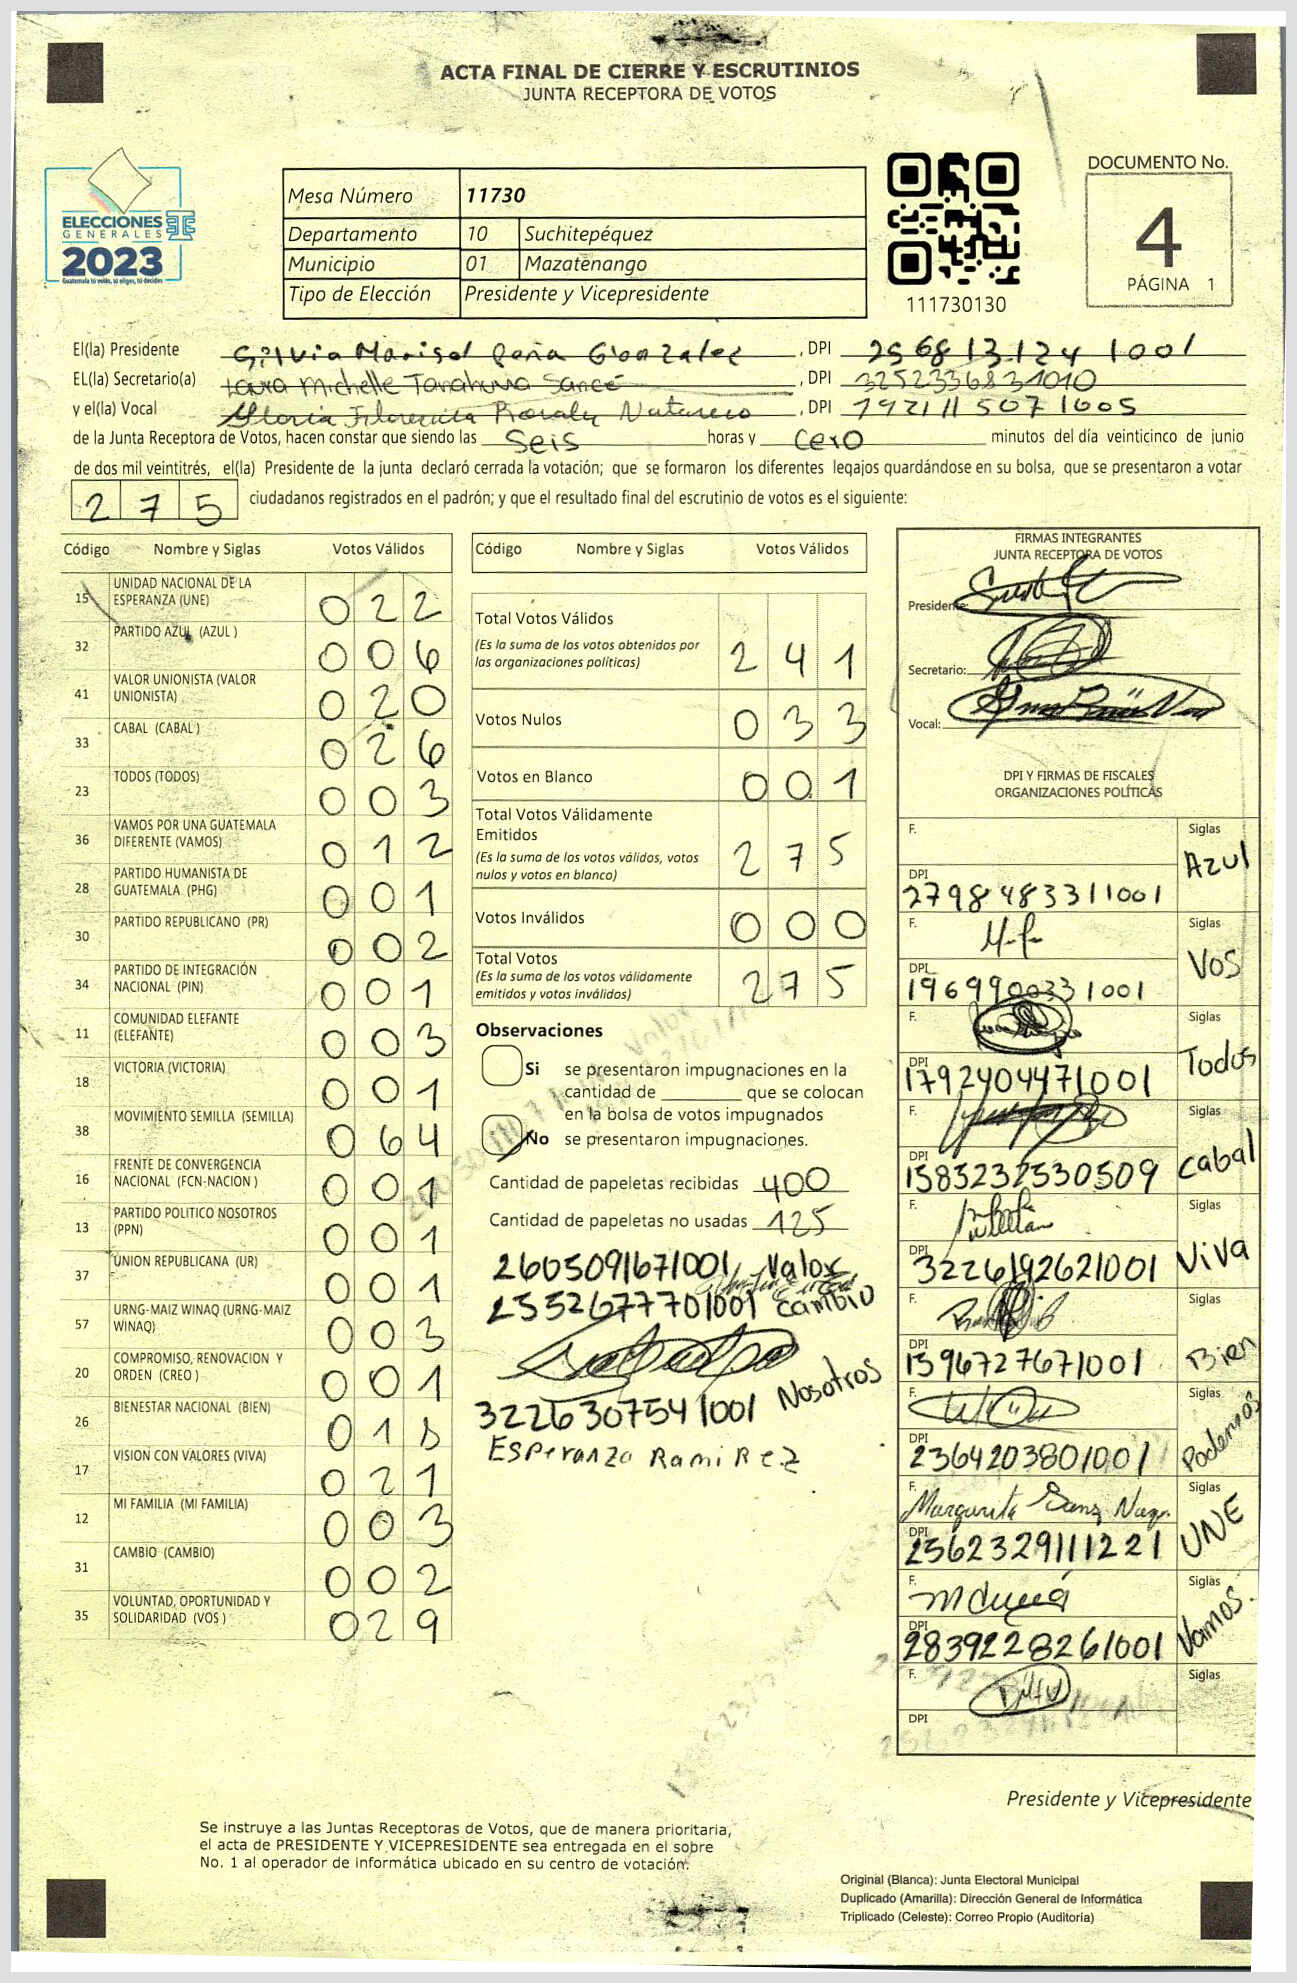 ACTA FINAL DE CIERRE Y ESCRUTINIOS
JUNTA RECEPTORA DE VOTOS
ELECCIONES
GENERALES
2023
Guatemala tú votás, tú eliges, tú decides
Mesa Número 11730
Departamento 10 Suchitepéquez
Municipio 01 Mazatenango
Tipo de Elección Presidente y Vicepresidente
111730130
DOCUMENTO No.
4
PÁGINA 1
El(la) Presidente Silvia Marisol Peña Gonzalez, DPI 2568131241001
EL(la) Secretario(a) Laura Michelle, DPI 3252336831010
y el(la) Vocal Gloria, DPI 1921115071005
de la Junta Receptora de Votos, hacen constar que siendo las Seis horas y Cero minutos del día veinticinco de junio
de dos mil veintitrés, el(la) Presidente de la junta declaró cerrada la votación; que se formaron los diferentes legajos guardándose en su bolsa, que se presentaron a votar
275 ciudadanos registrados en el padrón; y que el resultado final del escrutinio de votos es el siguiente:
Código Nombre y Siglas Votos Válidos
15 UNIDAD NACIONAL DE LA ESPERANZA (UNE) 022
32 PARTIDO AZUL (AZUL ) 006
41 VALOR UNIONISTA (VALOR UNIONISTA) 020
33 CABAL (CABAL ) 026
23 TODOS (TODOS) 003
36 VAMOS POR UNA GUATEMALA DIFERENTE (VAMOS) 012
28 PARTIDO HUMANISTA DE GUATEMALA (PHG) 001
30 PARTIDO REPUBLICANO (PR) 002
34 PARTIDO DE INTEGRACIÓN NACIONAL (PIN) 001
11 COMUNIDAD ELEFANTE (ELEFANTE) 003
18 VICTORIA (VICTORIA) 001
38 MOVIMIENTO SEMILLA (SEMILLA) 064
16 FRENTE DE CONVERGENCIA NACIONAL (FCN-NACION ) 001
13 PARTIDO POLITICO NOSOTROS (PPN) 001
37 UNION REPUBLICANA (UR) 001
57 URNG-MAIZ WINAQ (URNG-MAIZ WINAQ) 003
20 COMPROMISO, RENOVACION Y ORDEN (CREO ) 001
26 BIENESTAR NACIONAL (BIEN) 018
17 VISION CON VALORES (VIVA) 021
12 MI FAMILIA (MI FAMILIA) 003
31 CAMBIO (CAMBIO) 002
35 VOLUNTAD, OPORTUNIDAD Y SOLIDARIDAD (VOS ) 029
Código Nombre y Siglas Votos Válidos
Total Votos Válidos 241
(Es la suma de los votos obtenidos por
las organizaciones políticas)
Votos Nulos 033
Votos en Blanco 001
Total Votos Válidamente
Emitidos 275
(Es la suma de los votos válidos, votos
nulos y votos en blanco)
Votos Inválidos 000
Total Votos 275
(Es la suma de los votos válidamente
emitidos y votos inválidos)
Observaciones
Si se presentaron impugnaciones en la
cantidad de ________ que se colocan
en la bolsa de votos impugnados
No se presentaron impugnaciones.
Cantidad de papeletas recibidas 400
Cantidad de papeletas no usadas 125
2605091671001 Valor
2552677701001 Cambio
3226307541001 Nosotros
Esperanza Ramirez
FIRMAS INTEGRANTES
JUNTA RECEPTORA DE VOTOS
Presidente:
Secretario:
Vocal:
DPI Y FIRMAS DE FISCALES
ORGANIZACIONES POLÍTICAS
F. Siglas Azul
DPI 2798483311001
F. Siglas Vos
DPI 1969900331001
F. Siglas Todos
DPI 1792404471001
F. Siglas Cabal
DPI 1585232530509
F. Siglas Viva
DPI 3226192621001
F. Siglas Bien
DPI 1396727671001
F. Siglas Podemos
DPI 2364203801001
F. Margarita Siglas UNE
DPI 2562329111221
F. Siglas Vamos.
DPI 2839228261001
F. Siglas
DPI
Presidente y Vicepresidente
Se instruye a las Juntas Receptoras de Votos, que de manera prioritaria,
el acta de PRESIDENTE Y VICEPRESIDENTE sea entregada en el sobre
No. 1 al operador de informática ubicado en su centro de votación.
Original (Blanca): Junta Electoral Municipal
Duplicado (Amarilla): Dirección General de Informática
Triplicado (Celeste): Correo Propio (Auditoría)